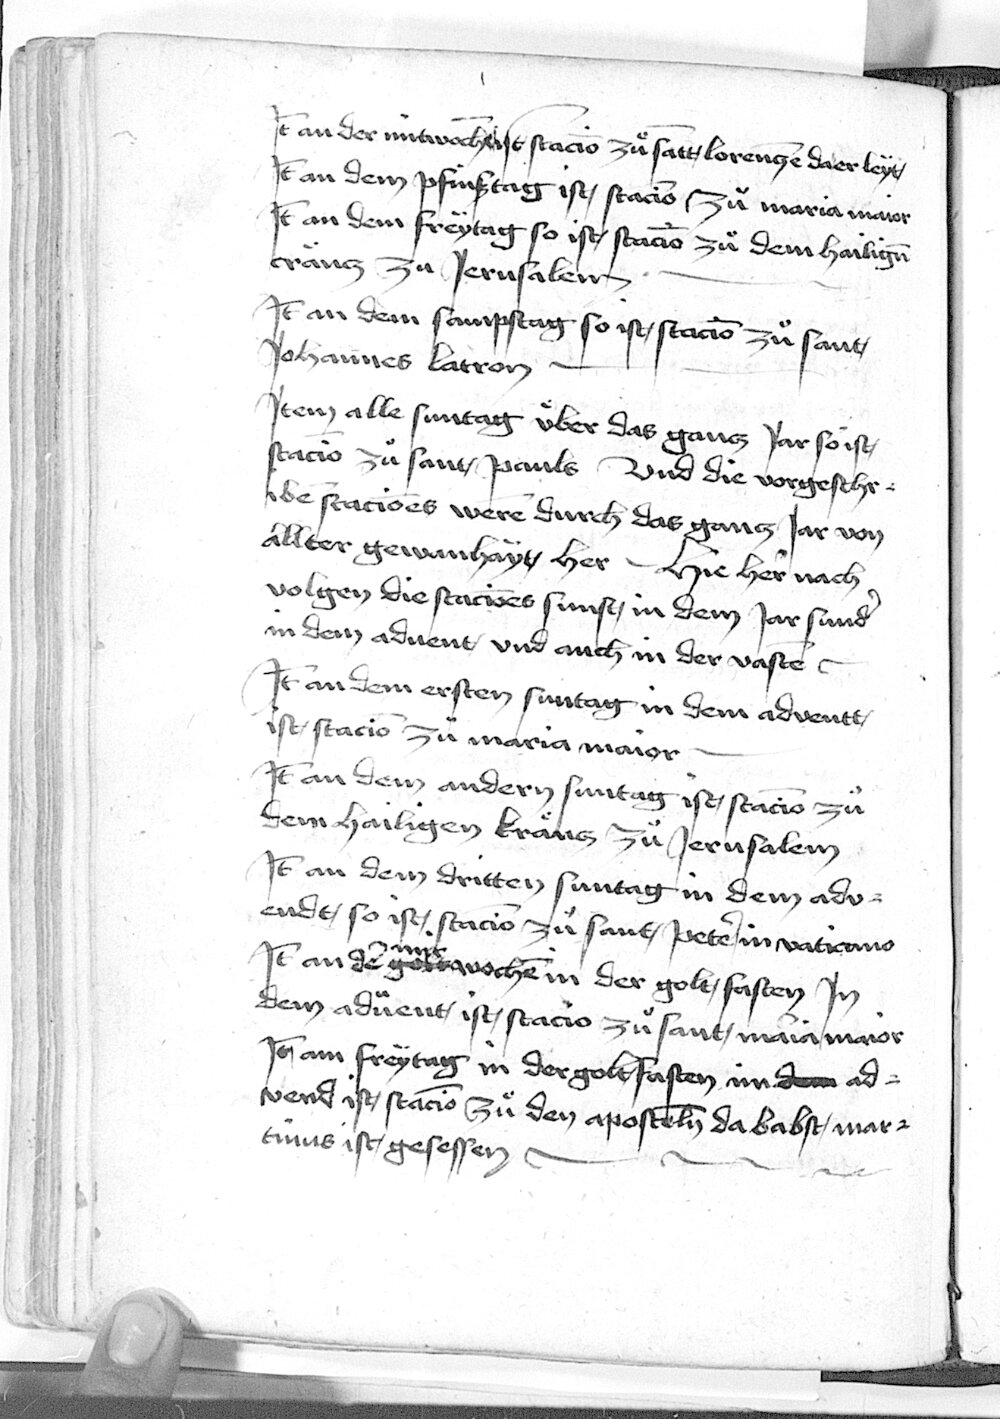 It̄ an der mitwoch̄ ist stacio̅ zů sant lorencze da er leÿt
It̄ an dem pfincztag ist stacio̅ zů maria maior
It̄ an dem freÿtag so ist stacio̅ zů dem hailign̄
cräucz zu Jerusalem
It̄ an dem sampstag so ist stacio̅ zů sant
Johannes latron
Item alle suntag ůber das gancz Jar so ist
stacio̅ zů sant pauls Vnd die vorgeschr=
ibe̅ stacio̅es were̅ durch das gancz Jar von
allter gewanhäÿt her Hie her nach
volgen die stacio̅es sunst in dem Jar sund̾
in dem aduent vnd auch in der vaste̅
It̄ an dem ersten suntag in dem adventt
ist stacio̅ zů maria maior
It̄ an dem andern suntag ist stacio̅ zů
dem hailigen kräucz zů Jerusalem
It̄ an dem dritten suntag in dem adv=
endt so ist stacio̅ zů sant pete̾ in vaticano
It̄ an de̾ mit woche̅ in der golt fasten In
dem adüent ist stacio zů sant maria maior
It̄ am freÿtag in der golt fasten im ad=
vend ist stacio̅ zů den aposteln̄ da babst mar=
tinus ist gesessen